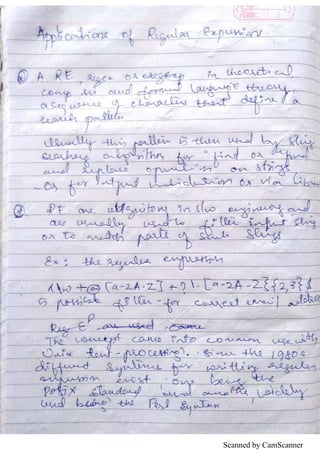 Date:
Applications of Regular Expressions
① A. RE, regex or regexp in theoretical
comp sci and formal language theory,
a sequence of characters that define a
search pattern
Usually this pattern is then used by string
searching algorithm for "find or "find
and replace" on strings
or for input validation or
② RE are in s/w engineering and
are usually used to filter input string
or to match parts of such strings
Ex: the regular expression
\w +@ [a-zA-Z] +?\. [a-zA-Z]{2,3}$
is possible filter for correct email address
The concept came into common use with
Unix text-processing. Since the 1980s
different syntaxes for writing regular
expression exist, one being the
POSIX standard and another, widely
used being the Perl syntax
Scanned by CamScanner